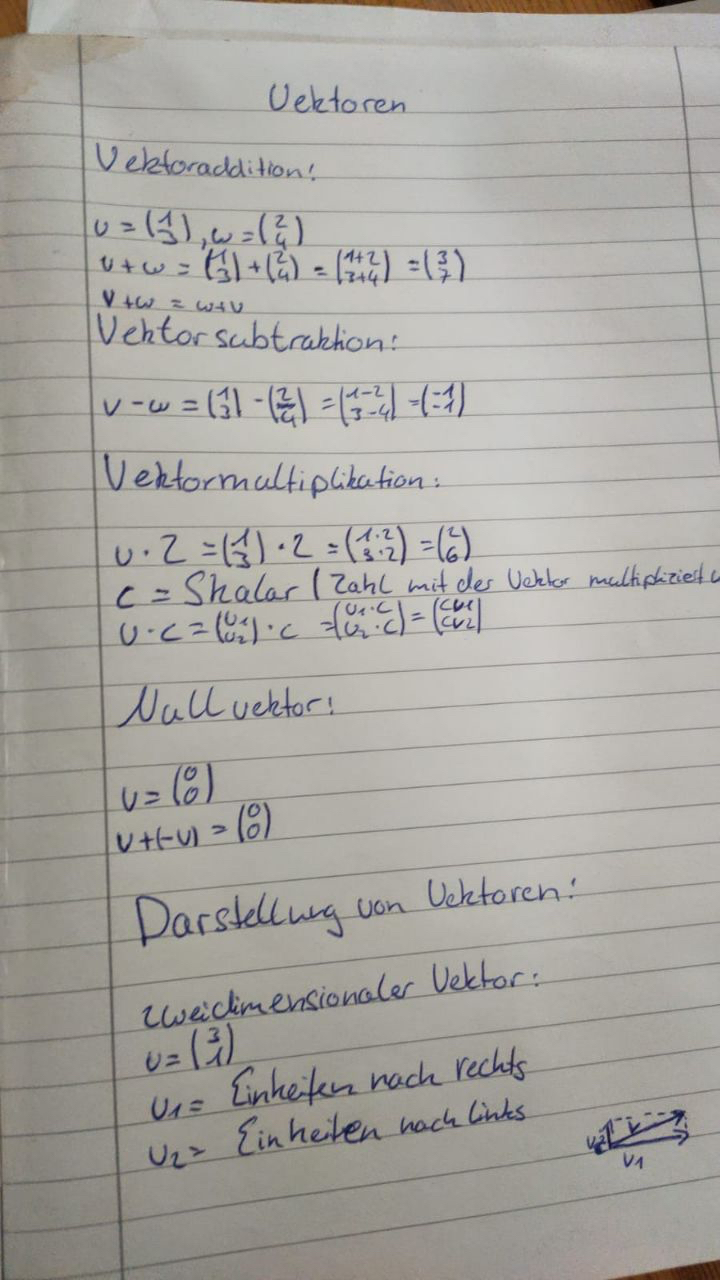 Vektoren
Vektoraddition:
v = (1 3), w = (2 4)
v + w = (1 3) + (2 4) = (1+2 3+4) = (3 7)
v + w = w + v
Vektorsubtraktion:
v - w = (1 3) - (2 4) = (1-2 3-4) = (-1 -1)
Vektormultiplikation:
v · 2 = (1 3) · 2 = (1·2 3·2) = (2 6)
c = Skalar / Zahl mit der Vektor multipliziert
v · c = (v1 v2) · c = (v1·c v2·c) = (cv1 cv2)
Nullvektor:
v = (0 0)
v + (-v) = (0 0)
Darstellung von Vektoren:
zweidimensionaler Vektor:
v = (3 1)
v1 = Einheiten nach rechts
v2 = Einheiten nach links
v2 v
v1